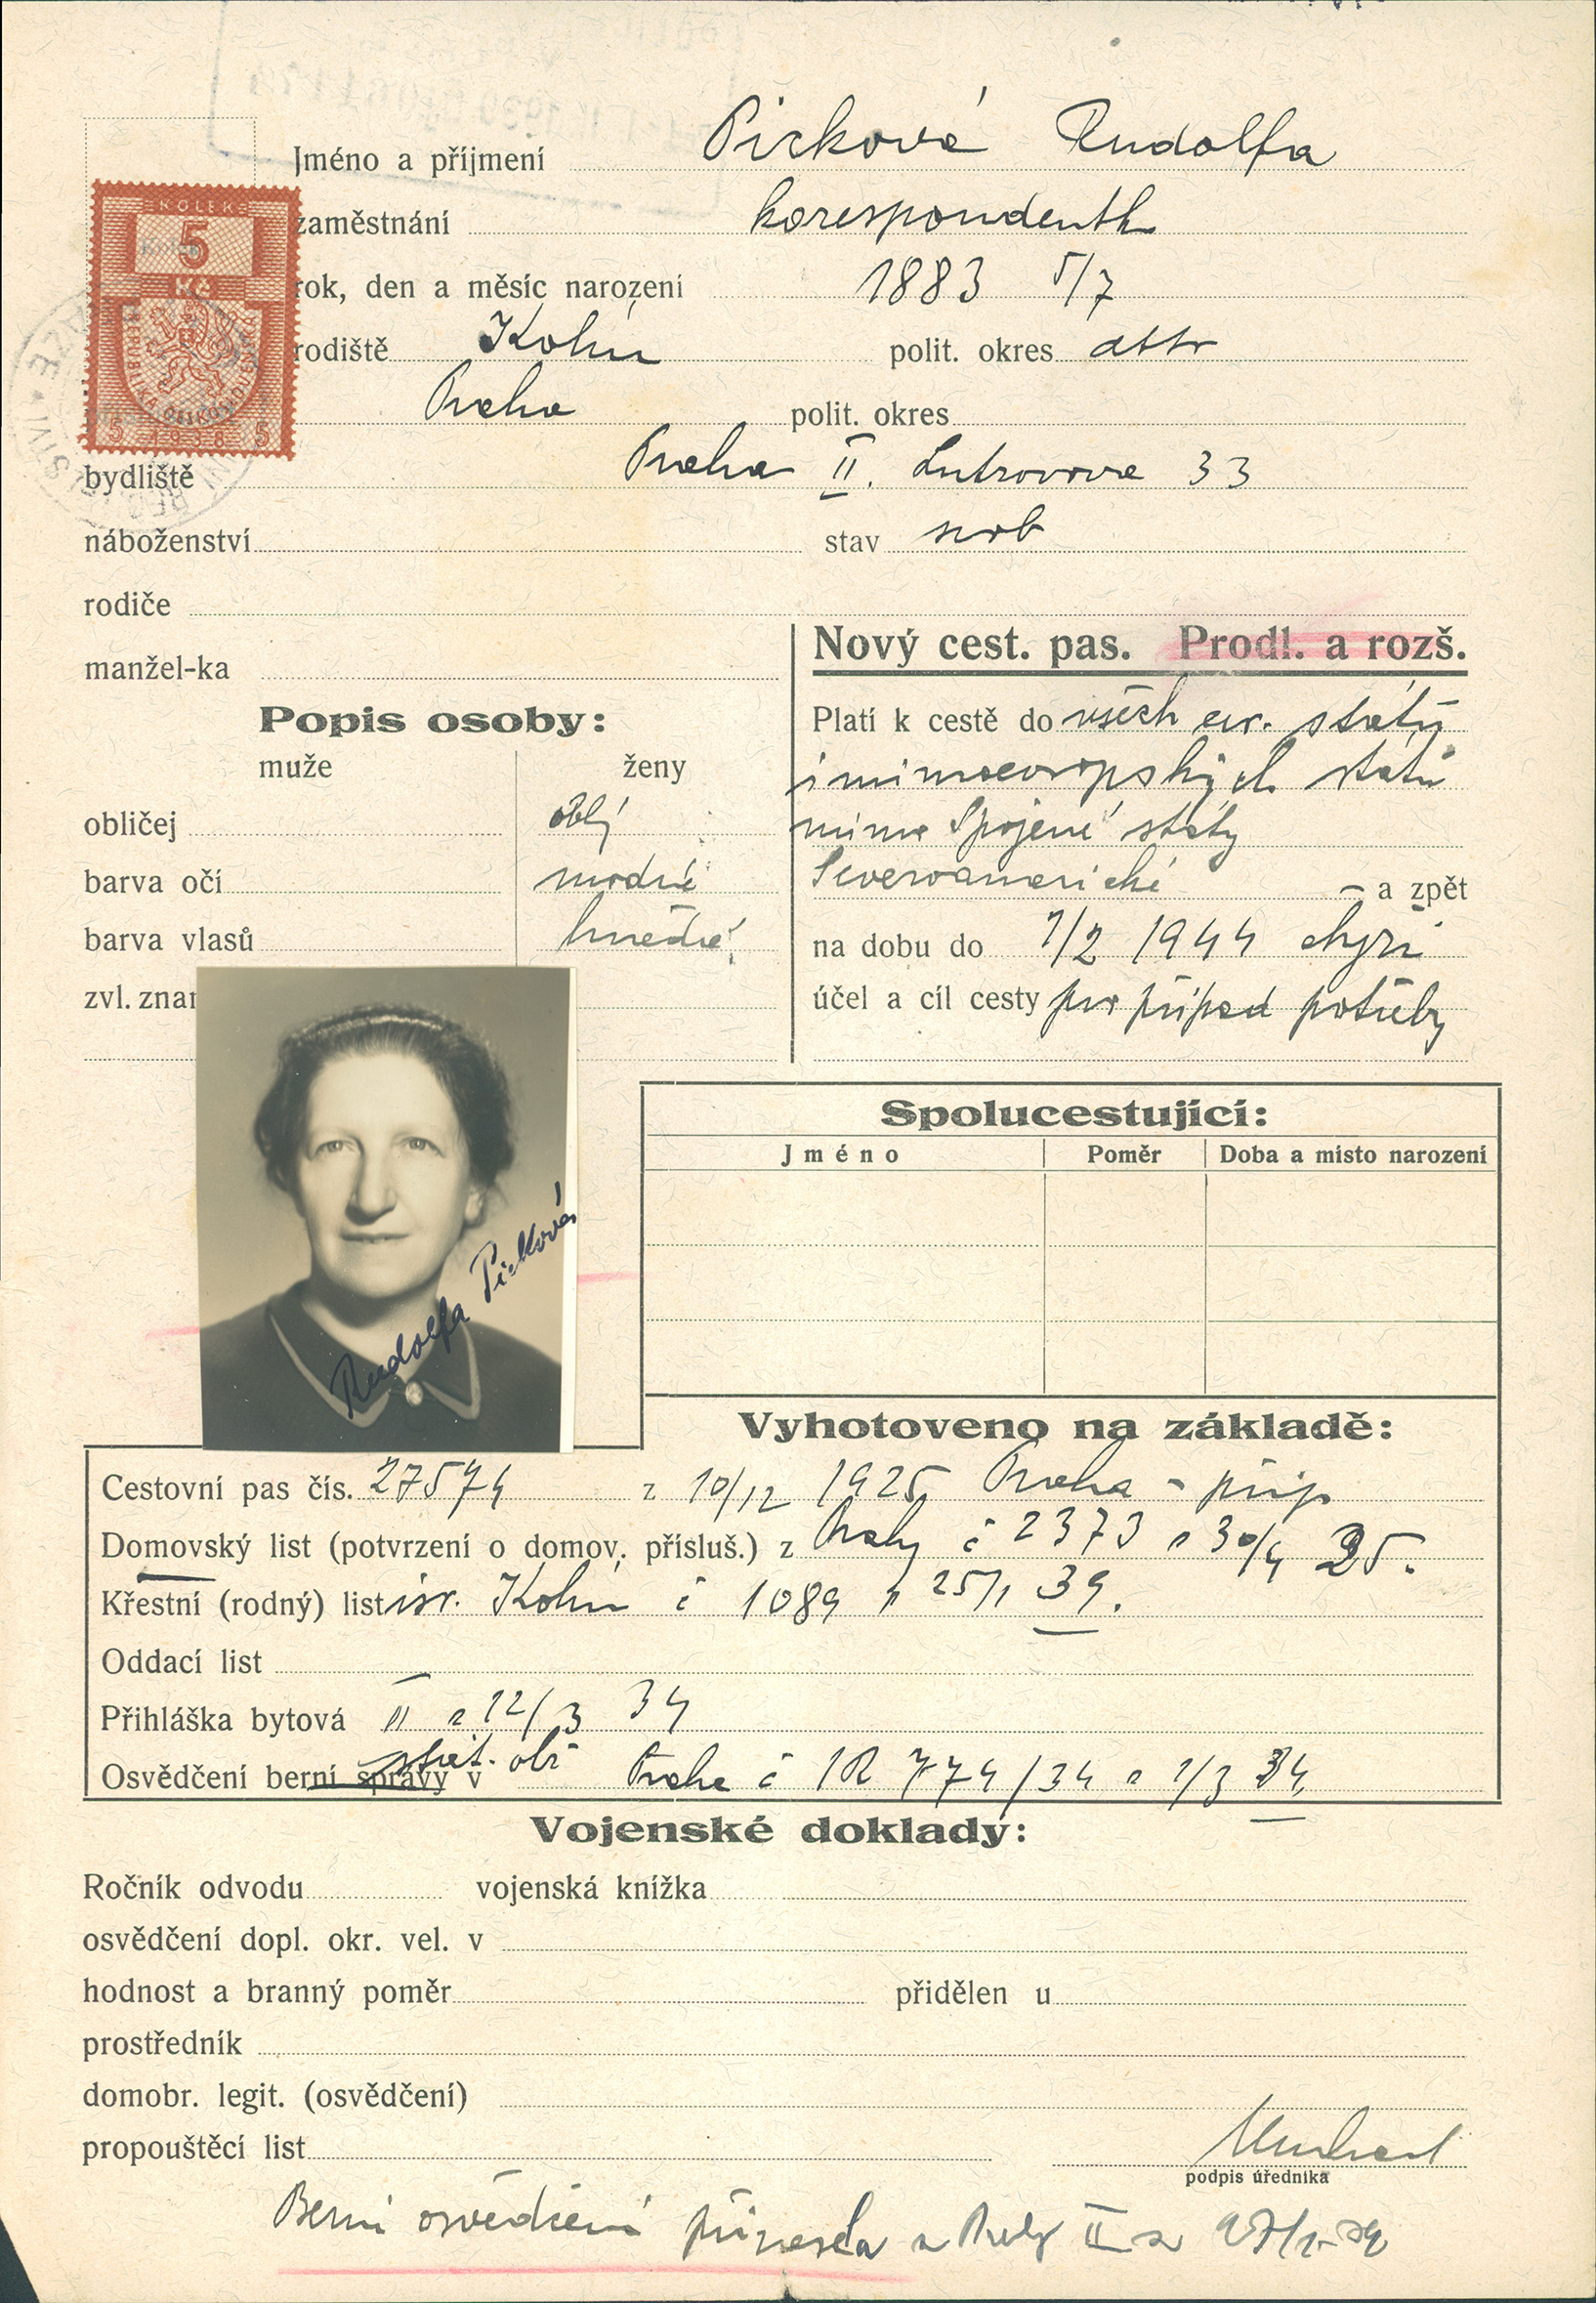 Jméno a příjmení Picková Rudolfa
zaměstnání korespondentk
rok, den a měsíc narození 1883 5/7
rodiště Kolín polit. okres dtto
Praha polit. okres
bydliště Praha II. 33
náboženství stav svob
rodiče
manžel-ka
KOLEK
5
Kč
REPUBLIKA ČESKOSLOVENSKÁ
5 1938 5
Nový cest. pas. Prodl. a rozš.
Popis osoby:
muže ženy
obličej oblý
barva očí modré
barva vlasů hnědé
zvl. znam
Platí k cestě do všech evr. států
i mimoevropských států
mimo Spojené státy
Severoamerické – a zpět
na dobu do 1/2 1944
účel a cíl cesty pro případ potřeby
Rudolfa Picková
Spolucestující:
Jméno Poměr Doba a místo narození
Vyhotoveno na základě:
Cestovní pas čís. 27574 z 10/12 1925 Praha -
Domovský list (potvrzení o domov. přísluš.) z Prahy č 2373 z 30/4 25.
Křestní (rodný) list isr. Kolín č 1089 z 25/1 39.
Oddací list
Přihláška bytová II z 12/3 34
stát. obč
Osvědčení berní správy v Praha č 1R 774/34 z 1/3 34
Vojenské doklady:
Ročník odvodu vojenská knížka
osvědčení dopl. okr. vel. v
hodnost a branný poměr přidělen u
prostředník
domobr. legit. (osvědčení)
propouštěcí list
podpis úředníka
Berní osvědčení přinesla z Prahy II z